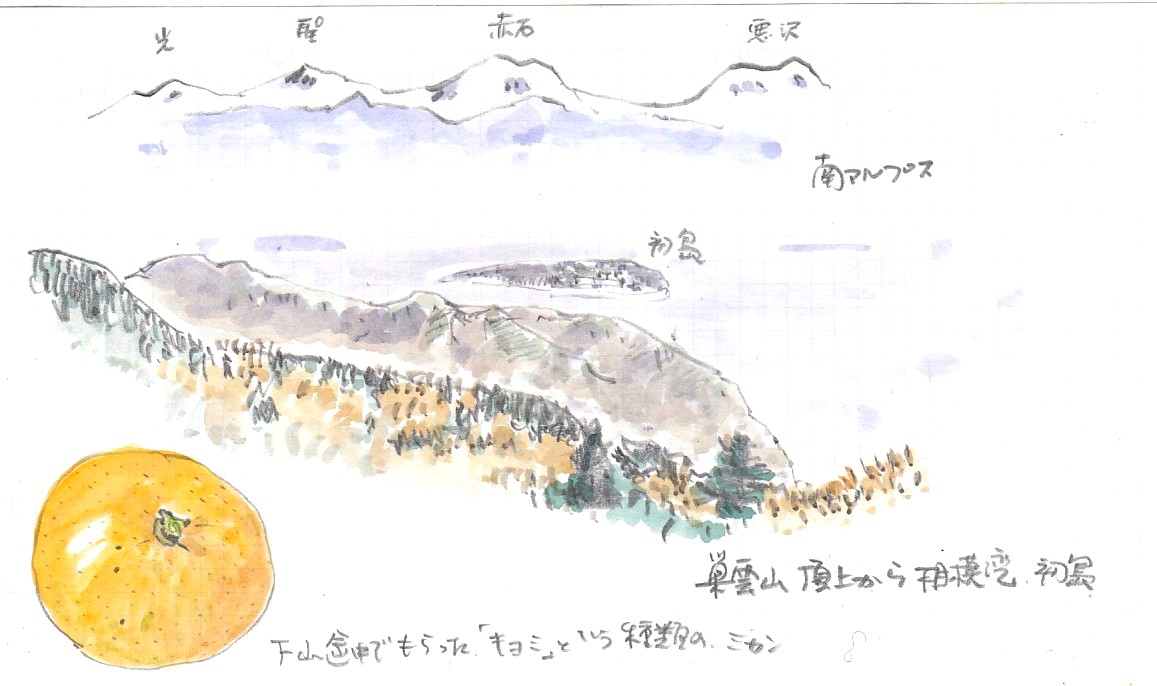 光 聖 赤石 悪沢
南アルプス
初島
巣雲山 頂上から 相模湾、初島
下山途中でもらった「キヨミ」という種類の、ミカン